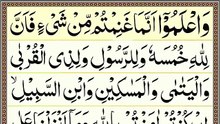 وَاعْلَمُوْۤا اَنَّمَا غَنِمْتُمْ مِّنْ شَیْءٍ فَاَنَّ
لِلّٰهِ خُمُسَهٗ وَلِلرَّسُوْلِ وَلِذِی الْقُرْبٰی
وَالْیَتٰمٰی وَالْمَسٰكِیْنِ وَابْنِ السَّبِیْلِ ۙ